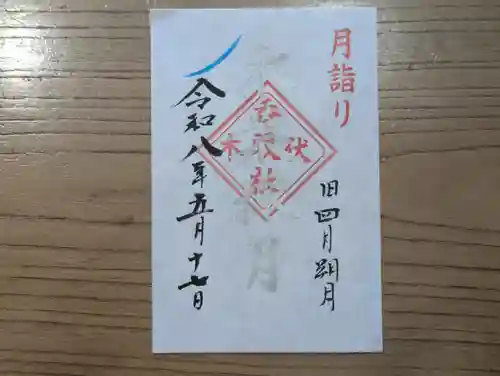 月詣り
旧四月朔月
伏木
香取社
令和八年五月十七日